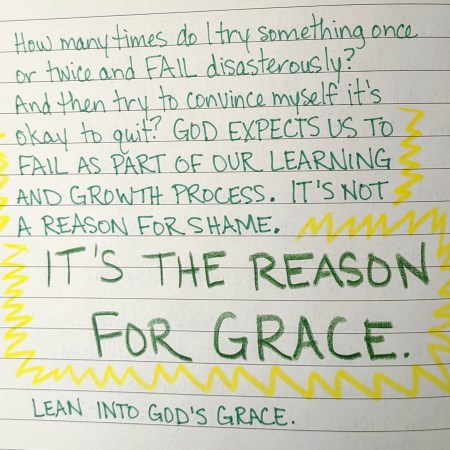 How many times do I try something once
or twice and FAIL disasterously?
And then try to convince myself it's
okay to quit? GOD EXPECTS US TO
FAIL AS PART OF OUR LEARNING
AND GROWTH PROCESS. IT'S NOT
A REASON FOR SHAME.
IT'S THE REASON
FOR GRACE.
LEAN INTO GOD'S GRACE.